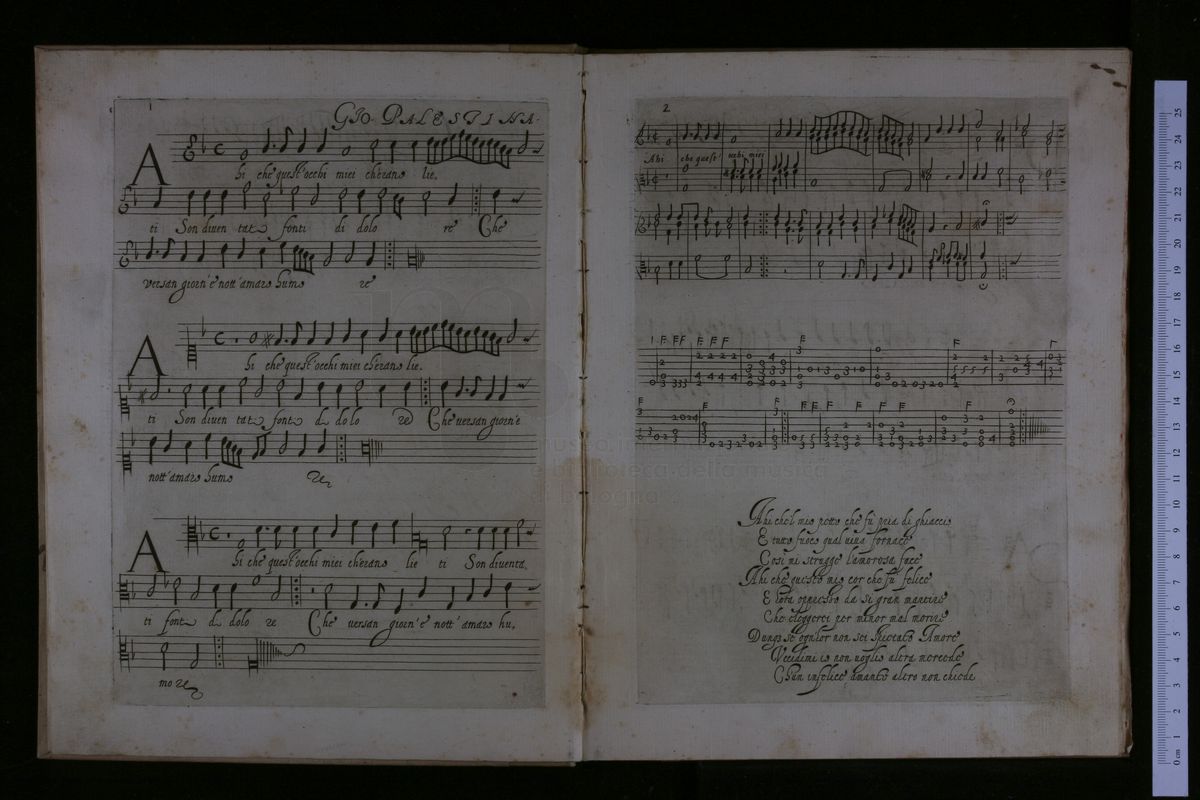 1
GIO. PALESTINA.
AHi che quest'occhi miei ch'erano lie.
ti Son diven tati fonti di dolo re Che
versan giorn'e nott'amaro humo re
AHi che quest'occhi miei ch'erano lie.
ti Son diven tati fonti di dolo re Che versan giorn'e
nott'amaro humo re
AHi che quest'occhi miei ch'erano lie ti Son diventa.
ti fonti di dolo re Che versan giorn'e nott'amaro hu.
mo re
2
Ahi che quest' occhi miei
Ahi che'l mio petto che fu pria di ghiaccio
E tutto fuoco qual viva fornace
Cosi mi strugge l'amorosa face
Ahi che questo mio cor che fu felice
E hora oppresso da si gran martire
Che eleggerei per minor mal morire
Dunqz se ognihor non sei spietato Amore
Uccidimi io non voglio altra mercede
Ch'un infelice amante altro non chiede
museo internazionale
e biblioteca della musica
di bologna